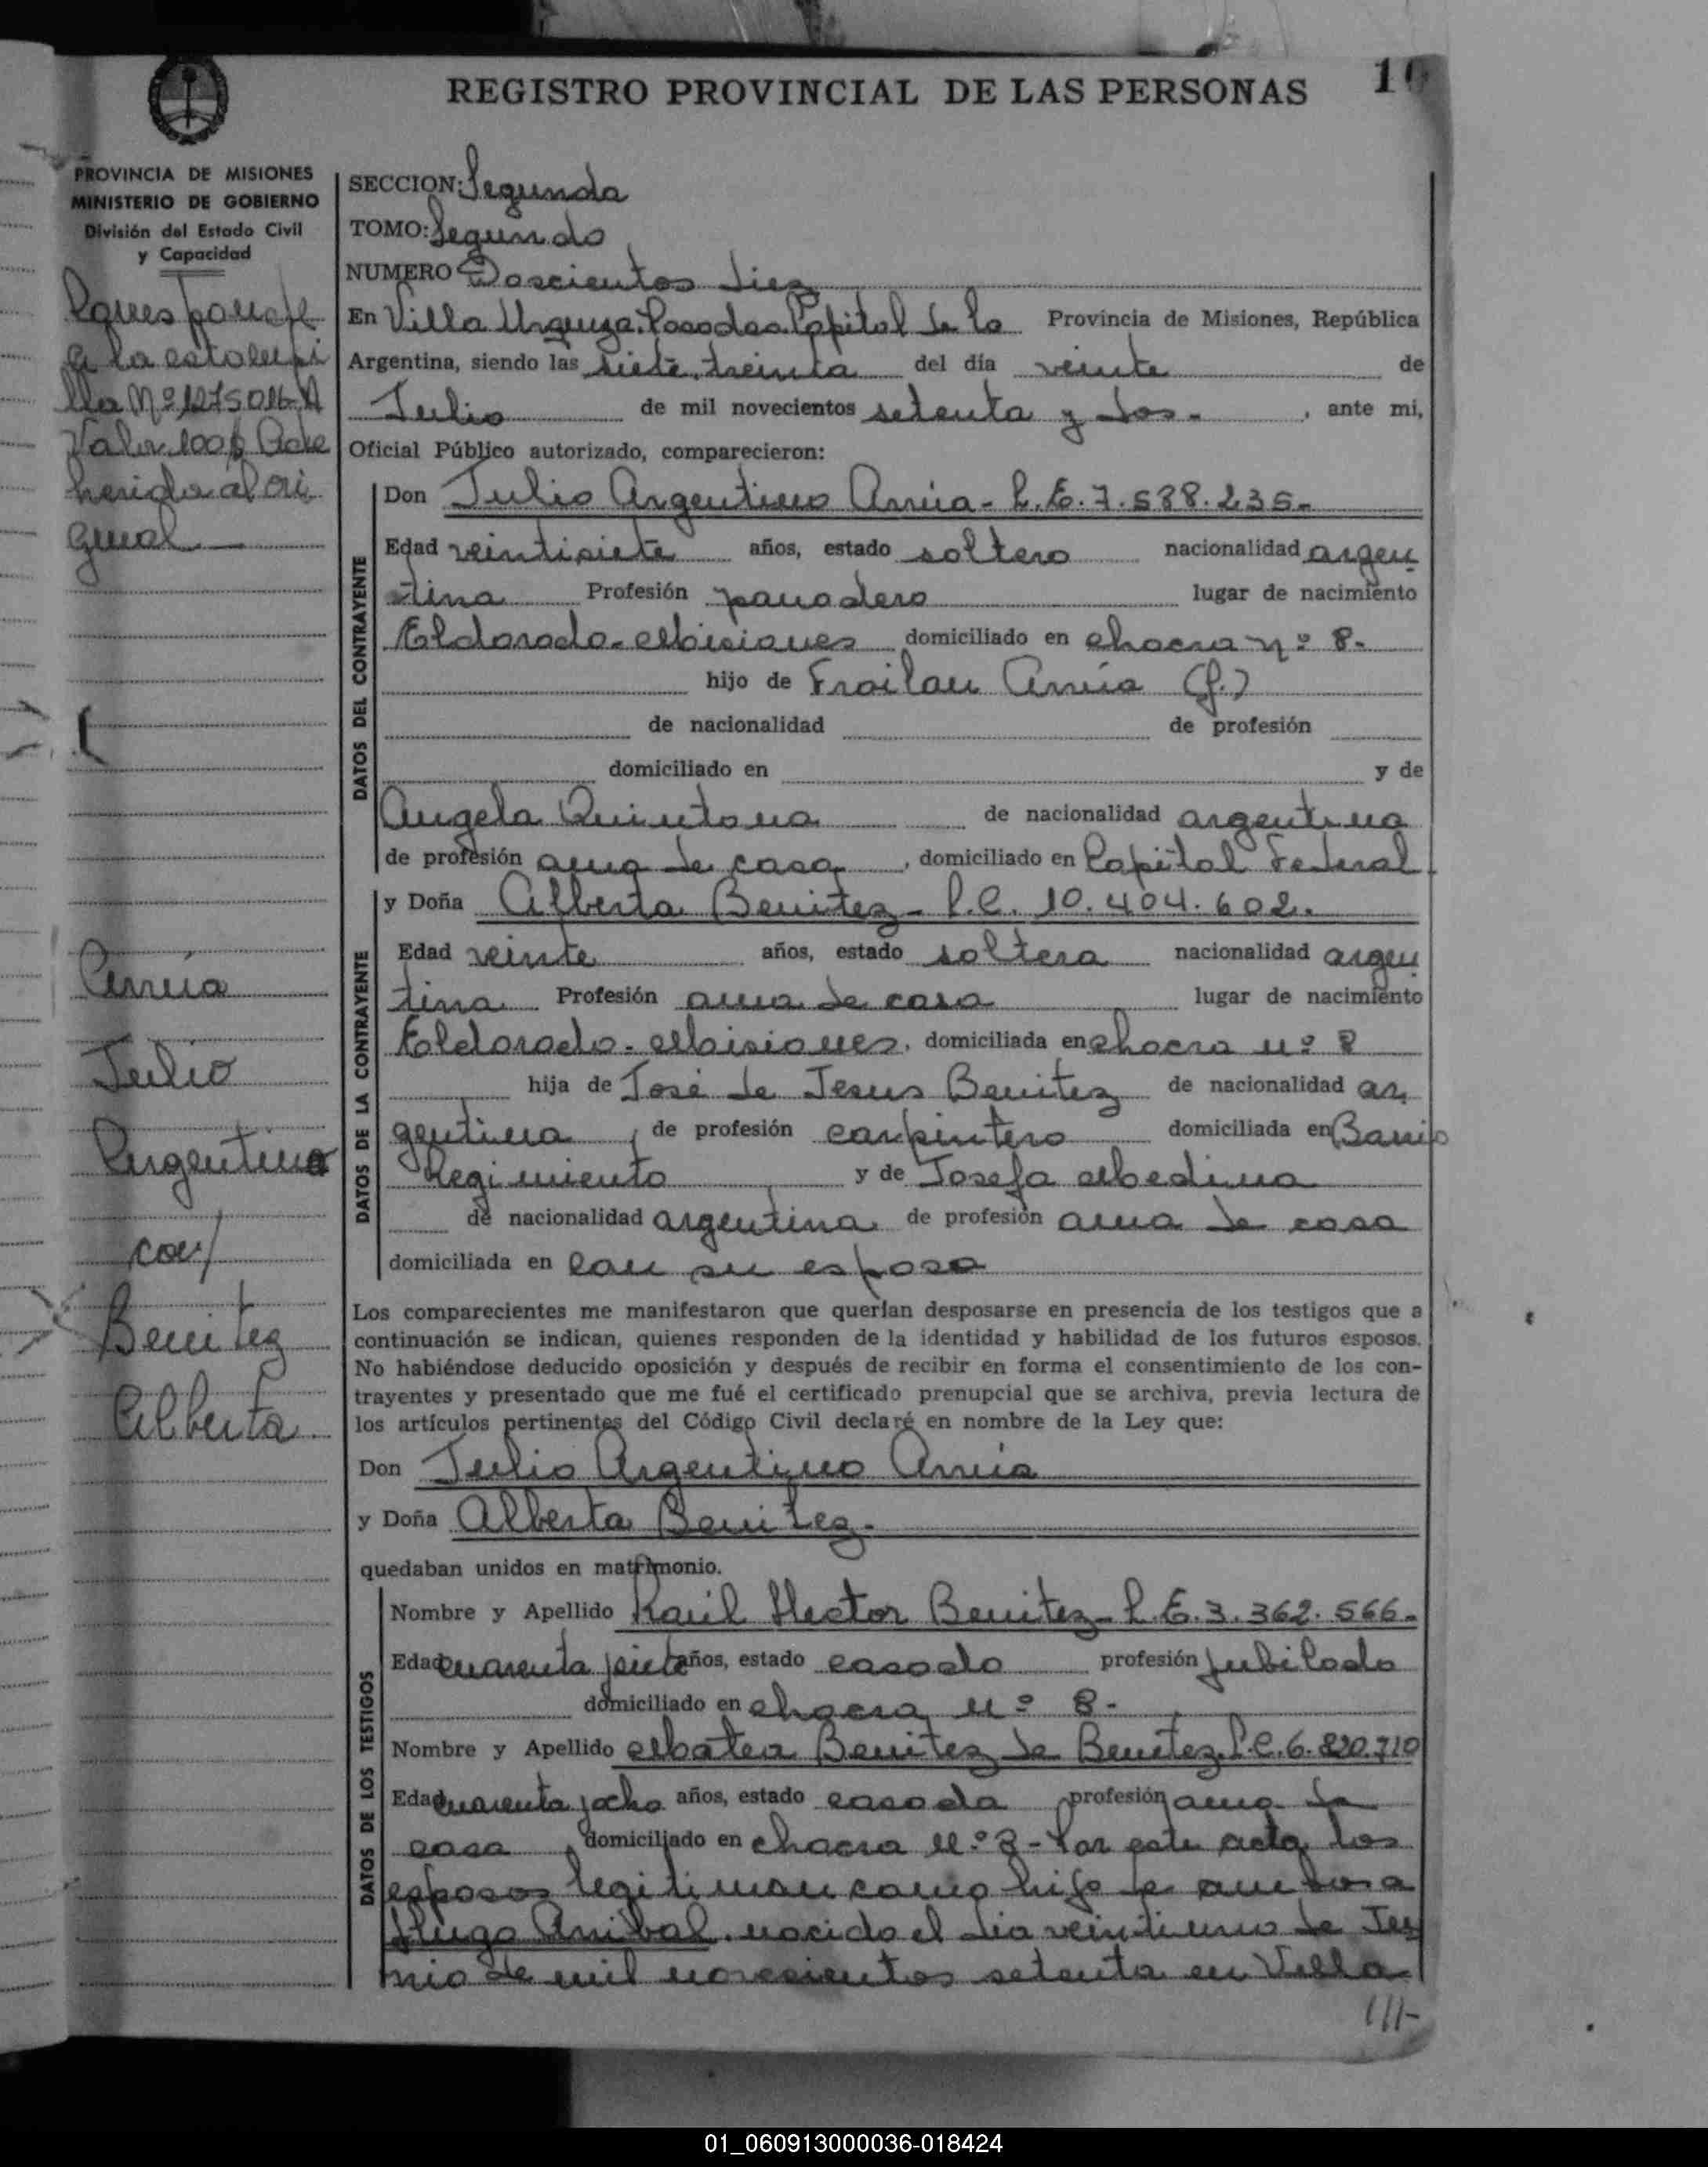 REGISTRO PROVINCIAL DE LAS PERSONAS
PROVINCIA DE MISIONES
MINISTERIO DE GOBIERNO
División del Estado Civil
y Capacidad
Corresponde
a la estampi
lla Nº 1275016-A
Valor 100$ Adhe
herida al ori
ginal
Arrúa
Julio
Argentino
con/
Benitez
Alberta
SECCION: Segunda
TOMO: Segundo
NUMERO Doscientos diez
En Villa Urquiza. Posadas Capital de la Provincia de Misiones, República
Argentina, siendo las siete, treinta del día veinte de
Julio de mil novecientos setenta y dos - , ante mi,
Oficial Público autorizado, comparecieron:
DATOS DEL CONTRAYENTE
Don Julio Argentino Arrúa - L.E. 7.588.235-
Edad veintisiete años, estado soltero nacionalidad argen
tina Profesión panadero lugar de nacimiento
Eldorado - Misiones domiciliado en chacra nº 8-
hijo de Froilan Arrúa (f.)
de nacionalidad de profesión
domiciliado en y de
Angela Quintana de nacionalidad argentina
de profesión ama de casa , domiciliado en Capital Federal
DATOS DE LA CONTRAYENTE
y Doña Alberta Benitez - L.C. 10.404.602.
Edad veinte años, estado soltera nacionalidad argen
tina Profesión ama de casa lugar de nacimiento
Eldorado - Misiones, domiciliada en chacra nº 8
hija de José de Jesus Benitez de nacionalidad ar
gentina, de profesión carpintero domiciliada en Barrio
Regimiento y de Josefa Medina
de nacionalidad argentina de profesión ama de casa
domiciliada en con su esposo
Los comparecientes me manifestaron que querían desposarse en presencia de los testigos que a
continuación se indican, quienes responden de la identidad y habilidad de los futuros esposos.
No habiéndose deducido oposición y después de recibir en forma el consentimiento de los con-
trayentes y presentado que me fué el certificado prenupcial que se archiva, previa lectura de
los artículos pertinentes del Código Civil declaré en nombre de la Ley que:
Don Julio Argentino Arrúa
y Doña Alberta Benitez -
quedaban unidos en matrimonio.
DATOS DE LOS TESTIGOS
Nombre y Apellido Raúl Hector Benitez - L.E. 3.362.566-
Edad cuarenta y siete años, estado casado profesión jubilado
domiciliado en chacra nº 8-
Nombre y Apellido Matea Benitez de Benitez. L.C. 6.820.710
Edad cuarenta y ocho años, estado casada profesión ama de
casa , domiciliado en chacra nº 8 - Por este acto los
esposos legitiman como hijo de ambos a
Hugo Anibal, nacido el dia veintiuno de Ju
nio de mil novecientos setenta en Villa
///-
01_060913000036-018424